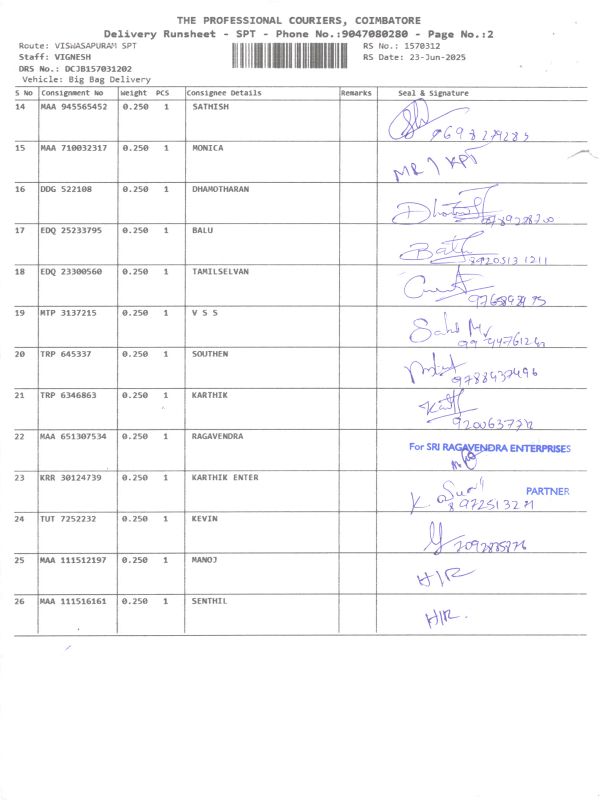 THE PROFESSIONAL COURIERS, COIMBATORE
Delivery Runsheet - SPT - Phone No.:9047080280 - Page No.:2
Route: VISWASAPURAM SPT
RS No.: 1570312
Staff: VIGNESH
RS Date: 23-Jun-2025
DRS No.: DCJB157031202
Vehicle: Big Bag Delivery
S No Consignment No Weight PCS Consignee Details Remarks Seal & Signature
14 MAA 945565452 0.250 1 SATHISH
15 MAA 710032317 0.250 1 MONICA
16 DDG 522108 0.250 1 DHAMOTHARAN
17 EDQ 25233795 0.250 1 BALU
18 EDQ 23300560 0.250 1 TAMILSELVAN
19 MTP 3137215 0.250 1 V S S
20 TRP 645337 0.250 1 SOUTHEN
21 TRP 6346863 0.250 1 KARTHIK
22 MAA 651307534 0.250 1 RAGAVENDRA For SRI RAGAVENDRA ENTERPRISES
23 KRR 30124739 0.250 1 KARTHIK ENTER PARTNER
24 TUT 7252232 0.250 1 KEVIN
25 MAA 111512197 0.250 1 MANOJ H/R
26 MAA 111516161 0.250 1 SENTHIL H/R.